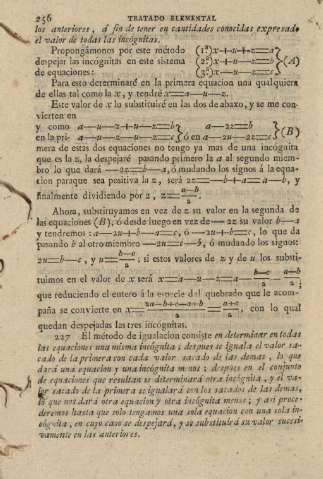 256 TRATADO ELEMENTAL
los anteriores, á fin de tener en cantidades conocidas expresado
el valor de todas las incógnitas.
Propongámonos por este método (1.ª) x+u+z=a
despejar las incógnitas en este sistema (2.ª) x+u-z=b (A)
de equaciones: (3.ª) x-u-z=c
Para esto determinaré en la primera equacion una qualquiera
de ellas tal como la x, y tendré x=a-u-z.
Este valor de x lo substituiré en las dos de abaxo, y se me con-
vierten en
y como a-u-z+u-z=b a-2z=b
en la pri- a-u-z-u-z=c ó en a-2u-2z=c (B)
mera de estas dos equaciones no tengo ya mas de una incógnita
que es la z, la despejaré pasando primero la a al segundo miem-
bro lo que dará -2z=b-a, ó mudando los signos á la equa-
cion paraque sea positiva la z, será 2z=-b+a=a-b, y
finalmente dividiendo por 2, z=a-b/2.
Ahora, substituyamos en vez de z su valor en la segunda de
las equaciones (B); ó desde luego en vez de -2z su valor b-a
y tendremos: a-2u+b-a=c, ó -2u+b=c, lo que da
pasando b al otro miembro -2u=c-b, ó mudando los signos:
2u=b-c, y u=b-c/2; si estos valores de z y de u los substi-
tuimos en el valor de x será x=a-u-z=a-b-c/2-a-b/2,
que reduciendo el entero á la especie del quebrado que le acom-
paña se convierte en x=2a-b+c-a+b/2=a+c/2, con lo qual
quedan despejadas las tres incógnitas.
227 El método de igualacion consiste en determinar en todas
las equaciones una misma incógnita; despues se iguala el valor sa-
cado de la primera con cada valor sacado de las demas, lo que
dará una equacion y una incógnita menos; despues en el conjunto
de equaciones que resultan se determinará otra incógnita, y el va-
lor sacado de la primera se igualará con los sacados de las demas,
lo que nos dará otra equacion y otra incógnita menos; y así proce-
deremos hasta que solo tengamos una sola equacion con una sola in-
cógnita, en cuyo caso se despejará, y se substituirá su valor sucesi-
vamente en las anteriores.